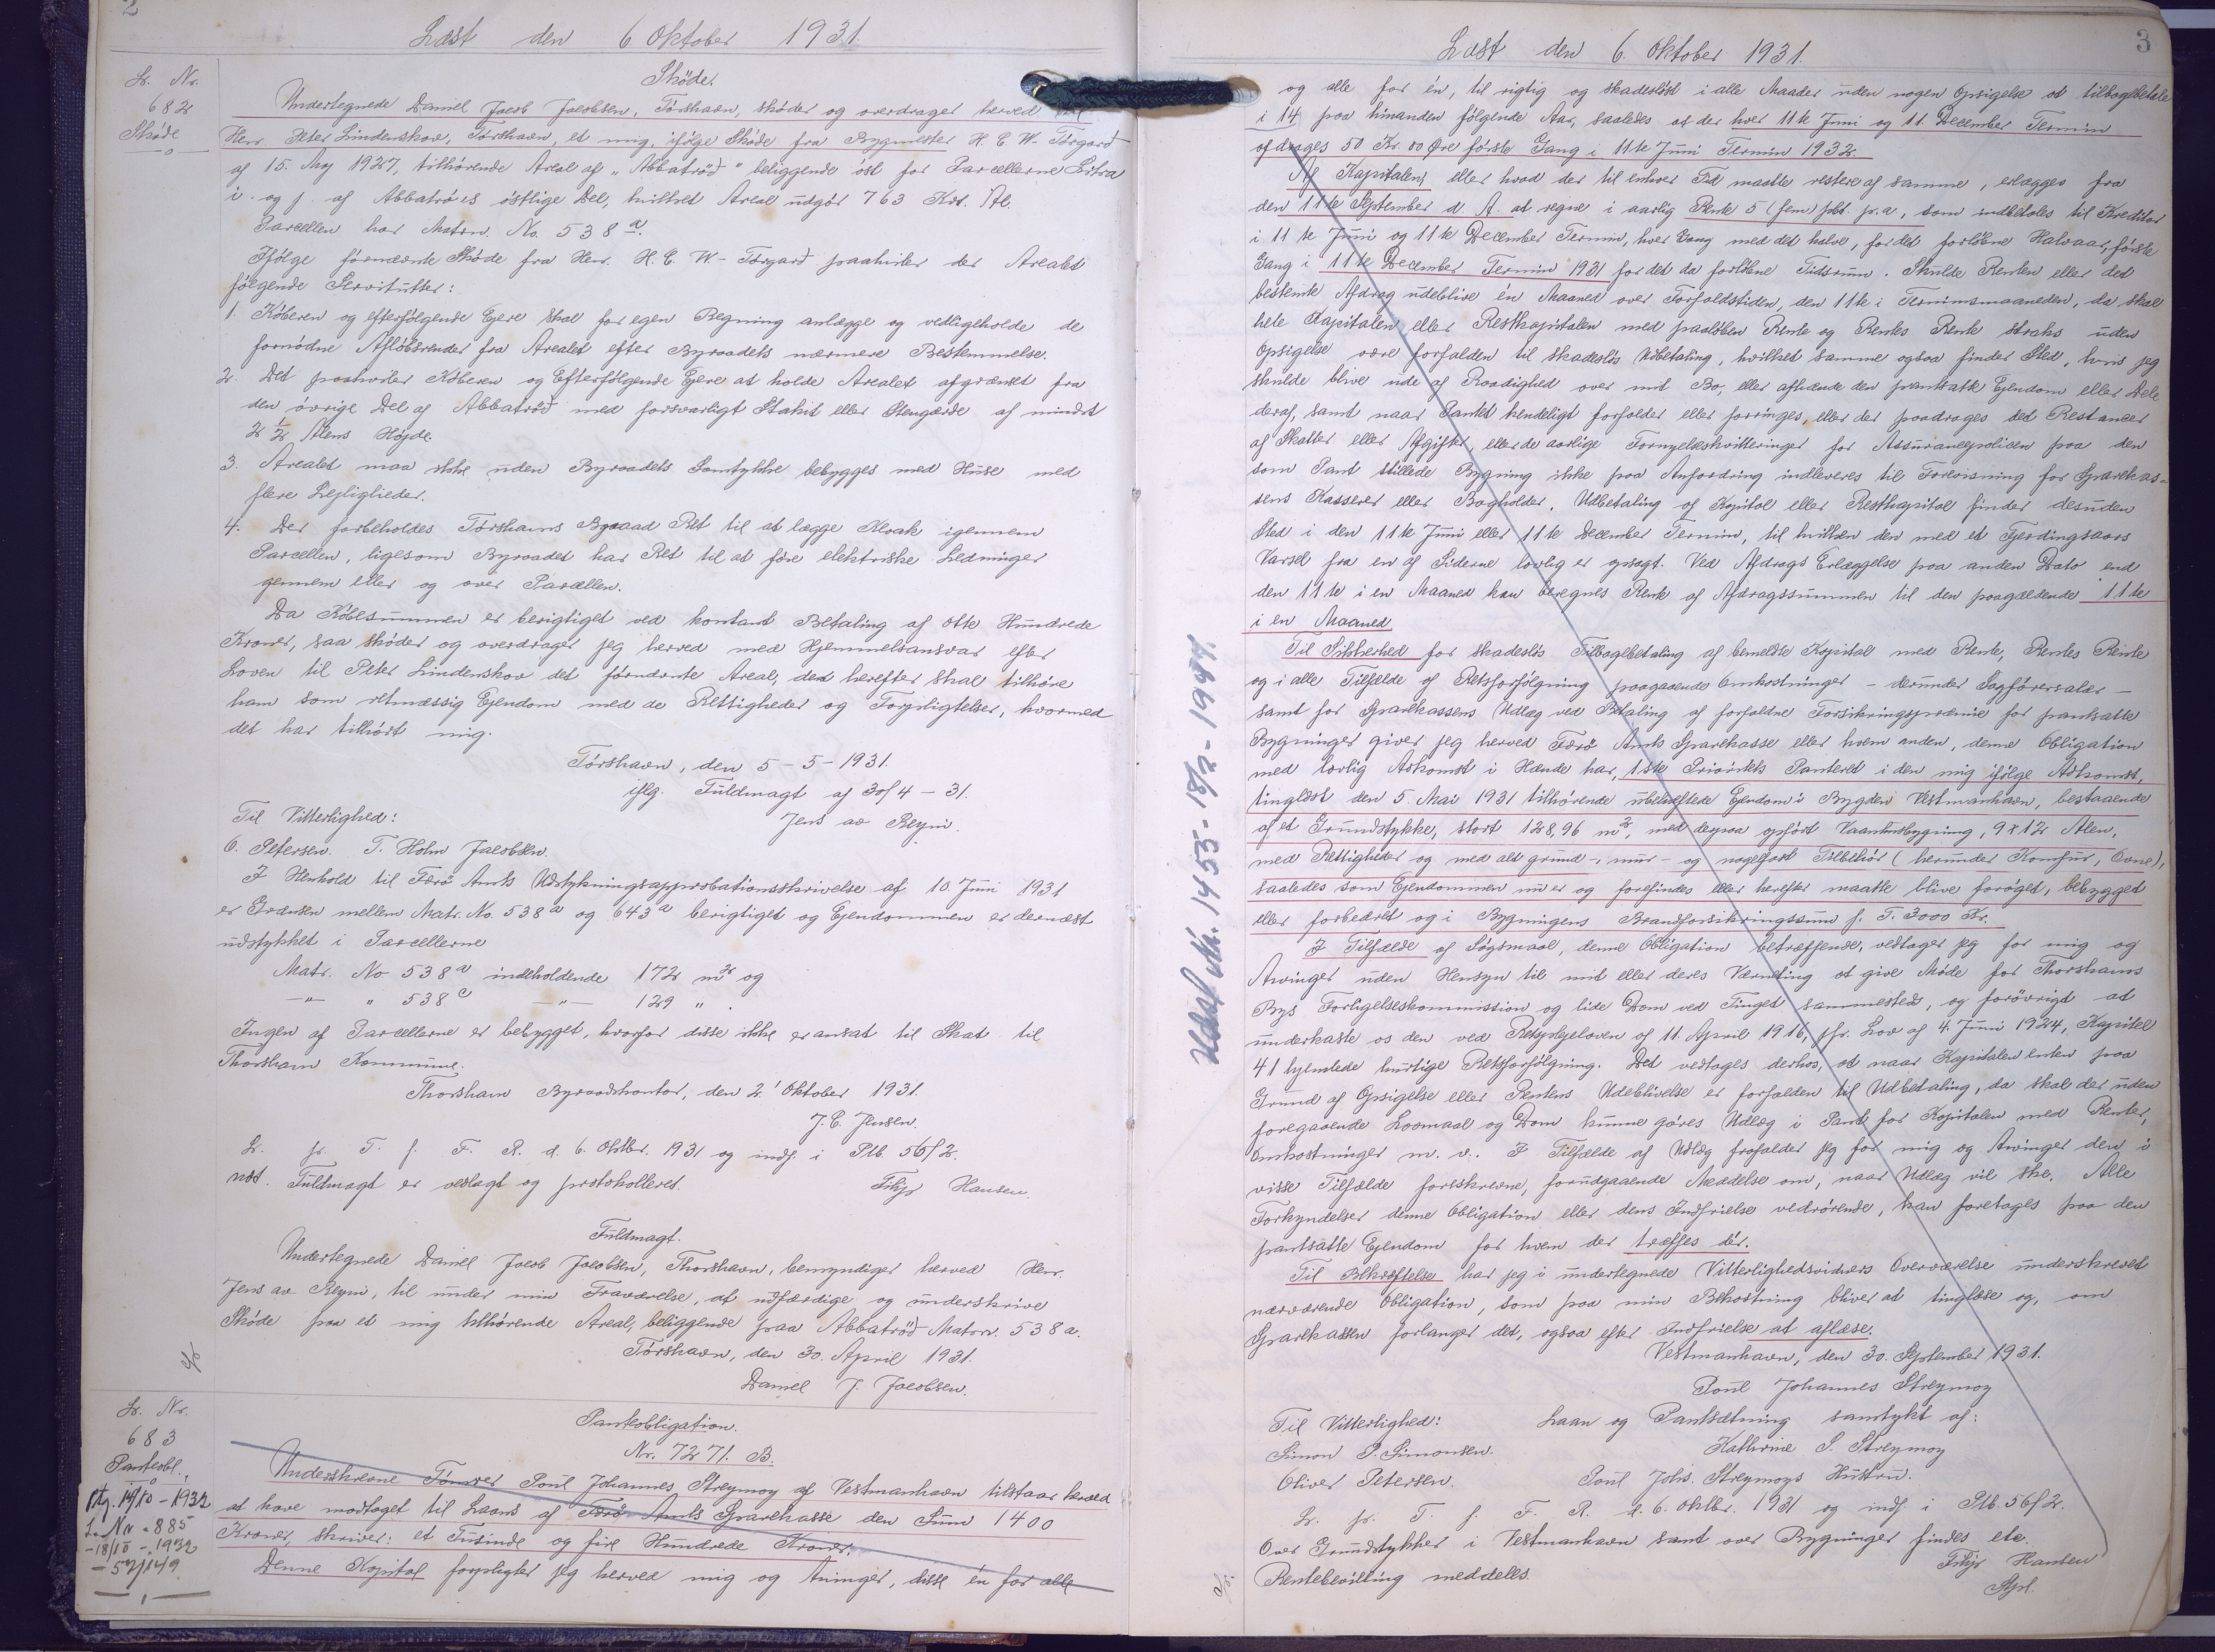 2
Læst den 6 Oktober 1931
Lr. Nr.
682
Skøde
Skøde.
Undertegnede Daniel Jacob Jacobsen, Tórshavn, skøder og overdrager herved til
Herr Peter Lindenskov, Tórshavn, et mig, ifølge Skøde fra Bygmester H. C. W. Tórgarð
af 15. Maj 1927, tilhørende Areal af „Abbatrøð" beliggende øst for Parcellerne Litra
i. og j. af Abbatrøðs østlige Del, hvilket Areal udgør 763 Kvt. Al.
Parcellen har Matrn. No. 538 a.
Ifølge førnævnte Skøde fra Herr. H. C. W. Tórgarð paahviler der Arealet
følgende Servitutter:
1. Køberen og efterfølgende Ejere skal for egen Regning anlægge og vedligeholde de
fornødne Afløbsrender fra Arealet efter Byraadets nærmere Bestemmelse.
2 Det paahviler Køberen og Efterfølgende Ejere at holde Arealet afgrænset fra
den øvrige Del af Abbatrøð med forsvarligt Stakit eller Stengærde af mindst
2 1/2 Alens Højde.
3. Arealet maa ikke uden Byraadets Samtykke bebygges med Huse med
flere Lejligheder.
4. Der forbeholdes Tórshavns Byraad Ret til at lægge Kloak igennem
Parcellen, ligesom Byraadet har Ret til at føre elektriske Ledninger
gennem eller og over Parcellen.
Da Købesummen er berigtiget ved kontant Betaling af otte Hundrede
Kroner, saa skøder og overdrager jeg herved med Hjemmelsansvar efter
Loven til Peter Lindenskov det førnævnte Areal, der herefter skal tilhøre
ham som retmæssig Ejendom med de Rettigheder og Forpligtelser, hvormed
det har tilhørt mig.
Tórshavn, den 5-5-1931.
iflg. Fuldmagt af 30/4-31.
Til Vitterlighed: Jens av Reyni.
O. Petersen. T. Holm Jacobsen.
I Henhold til Færø Amts Udstykningsapprobationsskrivelse af 10. Juni 1931
er Grænsen mellem Matr. No. 538a og 643a berigtiget og Ejendommen er dernæst
udstykket i Parcellerne
Matr. No 538a indeholdende 172 m2 og
—"— " 538c —"— 129 "
Ingen af Parcellerne er bebygget, hvorfor disse ikke er ansat til Skat til
Thorshavn Kommune.
Thorshavn Byraadskontor, den 2' Oktober 1931.
J. C. Jensen.
Lr. pr. T. f. F. R. d. 6. Oktbr. 1931 og indf. i Ptb. 56/2.
nøst. Fuldmagt er vedlagt og protokolleret. Filip Hansen.
Fuldmagt.
Undertegnede Daniel Jacob Jacobsen, Thorshavn, bemyndiger herved Herr.
Jens av Reyni, til under min Fraværelse, at udfærdige og underskrive
Skøde paa et mig tilhørende Areal, beliggende paa Abbatrøð Matrn. 538 a.
Tórshavn, den 30. April 1931.
Daniel J. Jacobsen.
Lr. Nr.
683
Panteobl.
14/10-1932
L. Nr. 885
-18/10-1932
Panteobligation.
Nr. 7271. B.
Underskrevne Tømrer Poul Johannes Streymoy af Vestmanhavn tilstaar herved
at have modtaget til Laans af Færø Amts Sparekasse den Sum 1400
Kroner, skriver: et Tusinde og fire Hundrede Kroner.
Denne Kapital forpligter jeg herved mig og Arvinger, disse én for alle
Læst den 6. Oktober 1931.
3
og alle for én, til rigtig og skadesløst i alle Maader uden nogen Opsigelse at tilbagebetale
i 14 paa hinanden følgende Aar, saaledes at der hver 11te Juni og 11. December Termin
afdrages 50 Kr. 00 Øre første Gang i 11te Juni Termin 1932.
Af Kapitalen, eller hvad der til enhver Tid maatte restere af samme, erlægges fra
den 11te September d. A. at regne i aarlig Rente 5 (fem) pct. p.a., som indbetales til Kreditor
i 11te Juni og 11te December Termin, hver Gang med det halve, for det forløbne Halvaar, første
Gang i 11te December Termin 1931 for det da forløbne Tidsrum. Skulde Renten eller det
bestemte Afdrag udeblive én Maaned over Forfaldstiden, den 11te i Terminsmaaneden, da skal
hele Kapitalen eller Restkapitalen med paaløben Rente og Rentes Rente straks uden
Opsigelse være forfalden til skadesløs Udbetaling, hvilket samme ogsaa finder Sted, hvis jeg
skulde blive ude af Raadighed over mit Bo, eller afhænde den pantsatte Ejendom eller Dele
deraf, samt naar Pantet kendeligt forfalder eller forringes, eller der paadrages det Restancer
af Skatter eller Afgifter, eller de aarlige Fornyelseskvitteringer for Assurancepolicen paa den
som Pant stillede Bygning ikke paa Anfordring indleveres til Forevisning for Sparekas-
sens Kasserer eller Bogholder. Udbetaling af Kapital eller Restkapital finder desuden
Sted i den 11te Juni eller 11te December Termin, til hvilken den med et Fjerdingaars
Varsel fra en af Siderne lovlig er opsagt. Ved Afdrags Erlæggelse paa anden Dato end
den 11te i en Maaned kan beregnes Rente af Afdragssummen til den paagældende 11te
i en Maaned
Til Sikkerhed for skadesløs Tilbagebetaling af bemeldte Kapital med Rente, Rentes Rente
og i alle Tilfælde af Retsforfølgning paagaaende Omkostninger – derunder Sagførersalær –
samt for Sparekassens Udlæg ved Betaling af forfaldne Forsikringspræmie for pantsatte
Bygninger giver jeg herved Færø Amts Sparekasse eller hvem anden, denne Obligation
med lovlig Adkomst i Hænde har, 1ste Prioritets Panteret i den mig ifølge Adkomst,
tinglæst den 5. Mai 1931 tilhørende ubehæftede Ejendom i Bygden Vestmanhavn, bestaaende
af et Grundstykke, stort 128,96 m2, med derpaa opført Vaaningsbygning, 9 x 12 Alen,
med Rettigheder og med alt grund-, mur- og nagelfast Tilbehør (herunder Komfur, Ovne),
saaledes som Ejendommen nu er og forefindes eller herefter maatte blive forøget, bebygget
eller forbedret og i Bygningens Brandforsikringssum p. T. 3000 Kr.
I Tilfælde af Søgsmaal, denne Obligation betræffende, vedtager jeg for mig og
Arvinger uden Hensyn til mit eller deres Værneting at give Møde for Thorshavns
Bys Forligelseskommission og lide Dom ved Tinget sammesteds, og forøvrigt at
underkaste os den ved Retsplejeloven af 11. April 1916, jfr. Lov af 4. Juni 1924, Kapitel
41 hjemlede hurtige Retsforfølgning. Det vedtages derhos, at naar Kapitalen enten paa
Grund af Opsigelse eller Rentens Udeblivelse er forfalden til Udbetaling, da skal der uden
foregaaende Lovmaal og Dom kunne gøres Udlæg i Pant for Kapitalen med Renter,
Omkostninger m. v.. I Tilfælde af Udlæg frafalder jeg for mig og Arvinger den i
visse Tilfælde foreskrevne, forudgaaende Meddelelse om, naar Udlæg vil ske. Alle
Forkyndelser denne Obligation eller dens Indfrielse vedrørende, kan foretages paa den
pantsatte Ejendom for hvem der træffes dér.
Til Bekræftelse har jeg i undertegnede Vitterlighedsvidners Overværelse underskrevet
nærværende Obligation, som paa min Bekostning bliver at tinglæse og, om
Sparekassen forlanger det, ogsaa efter Indfrielse at aflæse.
Vestmanhavn, den 30. September 1931.
Poul Johannes Streymoy
Til Vitterlighed: Laan og Pantsætning samtykt af:
Simon P. Simonsen. Kathrine S. Streymoy
Oliver Petersen. Poul Johs. Streymoys Hustru.
Lr. pr. T. f. F. R. d. 6. Oktbr. 1931 og indf. i Ptb. 56/2.
Over Grundstykker i Vestmanhavn samt over Bygninger findes ete.
Rentebevilling meddelts. Filip Hansen
Udsl Nr. 1455-18/2-1944.